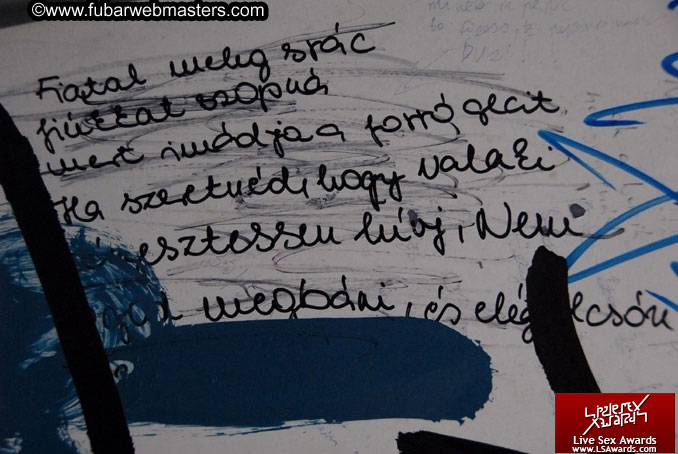 www.fubarwebmasters.com
Fiatal meleg srác
fiúkkat szopná
mert imádja a forró gecit
Ha szeretnéd, hogy valaki
esztessen hívj, Nem
megbáni, és elég olcsón
Live Sex Awards
www.LSAwards.com